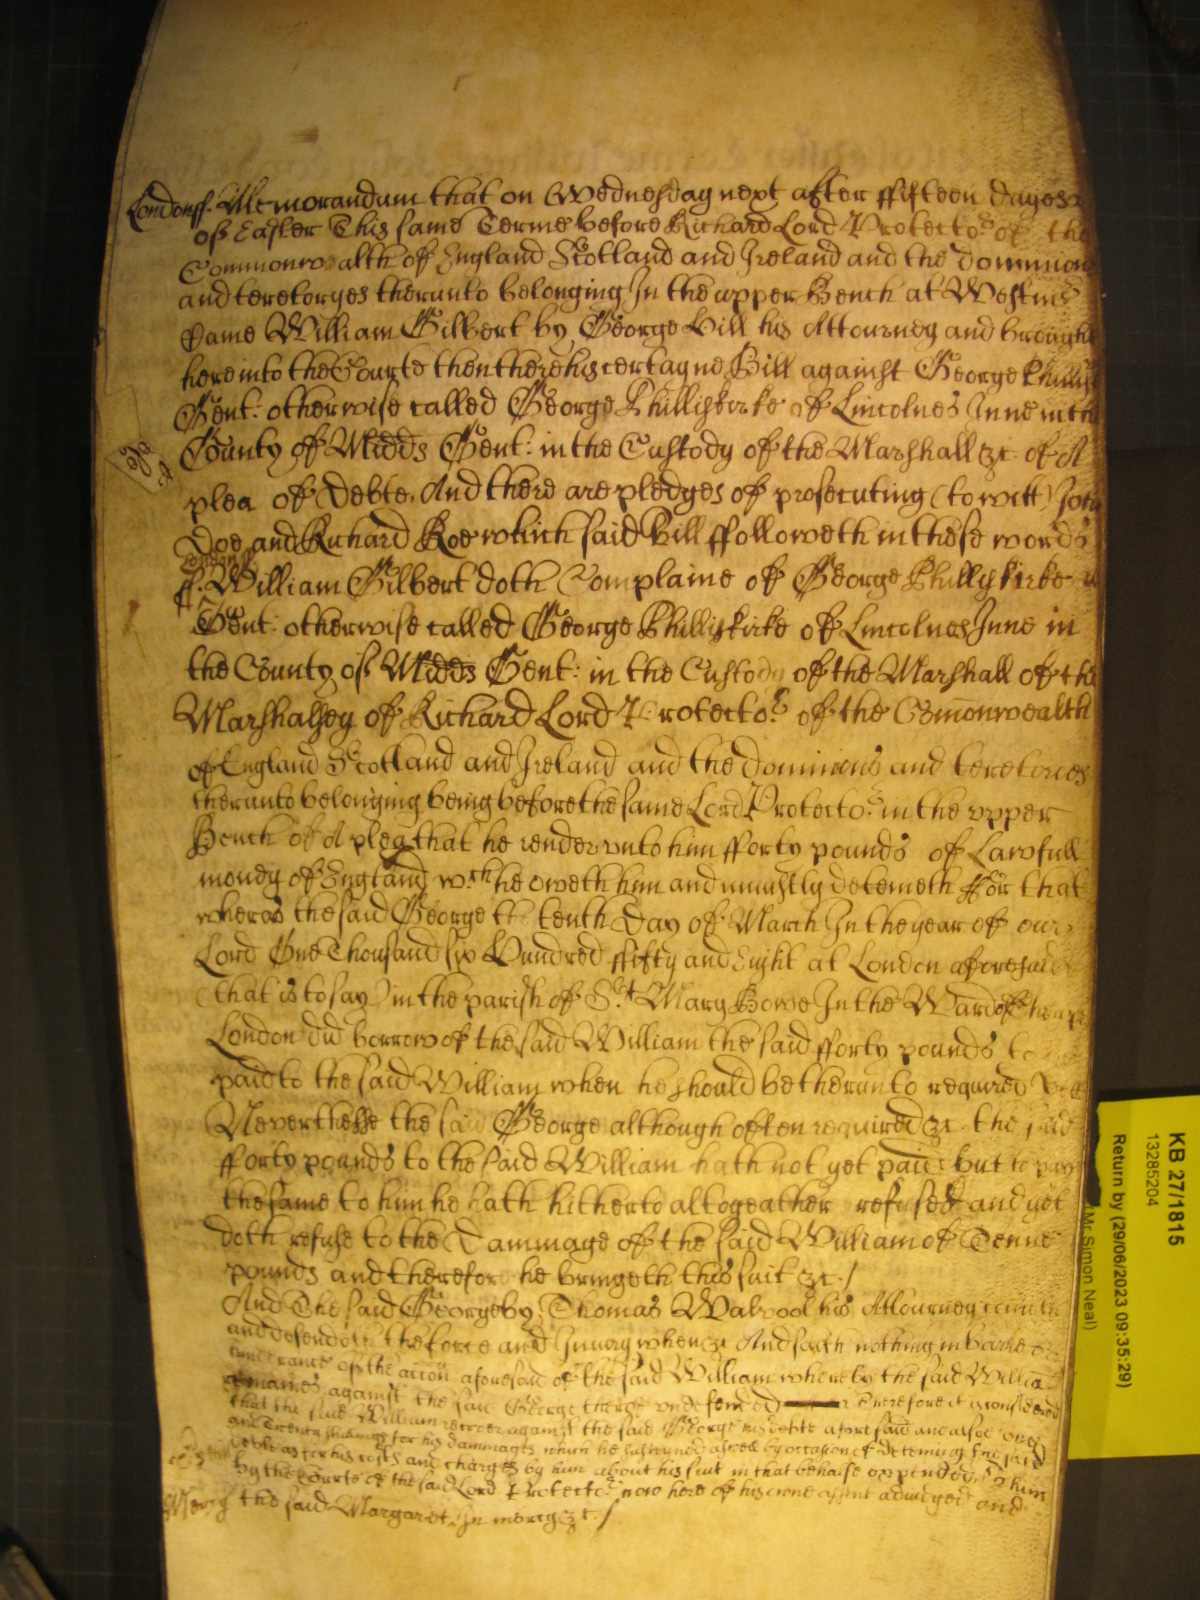 London ff. Memorandum that on Wednesday next after ffifteen dayes
of Easter This same Terme before Richard Lord Protector of the
Commonwealth of England Scotland and Ireland and the dominions
and teretoryes therunto belonging In the upper Bench at Westmr
Came William Gilbert by George Hill his Attourney and brought
here into the Courte then there his certayne Bill against George Phillis
Gent: otherwise called George Phillipkirke of Lincolnes Inne in the
County of Midds Gent: in the Custody of the Marshall &c of A
plea of Debte, And there are pledges of prosecuting (to witt) John
Doe and Richard Roe which said Bill ffolloweth in these words
London
ff. William Gilbert doth Complaine of George Phillipkirke
Gent: otherwise called George Phillipkirke of Lincolnes Inne in
the County of Midds Gent: in the Custody of the Marshall of the
Marshalsey of Richard Lord Protector of the Comonwealth
of England Scotland and Ireland and the dominions and teretories
therunto belonging being before the same Lord Protector in the upper
Bench of A plea that he render unto him fforty pounds of Lawfull
money of England wch he oweth him and uniustly deteineth ffor that
wheras the said George the tenth Day of March In the year of our
Lord One Thousand six Hundred ffifty and Eight at London aforesaid
(that is to say) in the parish of St Mary Bowe In the Ward of Cheape
London did borrow of the said William the said fforty pounds to
paid to the said William when he should be therunto required
Neverthesse the said George although often required &c the said
fforty pounds to the said William hath not yet paid but to pay
the same to him he hath hitherto altogeather refused and yet
doth refuse to the Dammage of the said William of Tenne
pounds and therefore he bringeth this suit &c /
And The said George by Thomas Walpool his Attourney cometh
and defendeth the force and Iniury when &c And saith nothing in barre or
of the accon aforesaid of the said William whereby the said Willia
remaines against the said George therof undefended Therefore it is considered
that the said William recover against the said George his debte aforesaid and alsoe
and Twenty shillings for his dammages which he susteyned aswell by occasion of deteining the said
debte as for his costs and charges by him about his suit in that behalfe expended to him
by the Courte of the said Lord Protector now here of his owne assent adiudged and
Mercy the said Margaret In mercy &c /
KB 27/1815
13285204
Return by (29/06/2023 09:35:29)
(Mr Simon Neal)